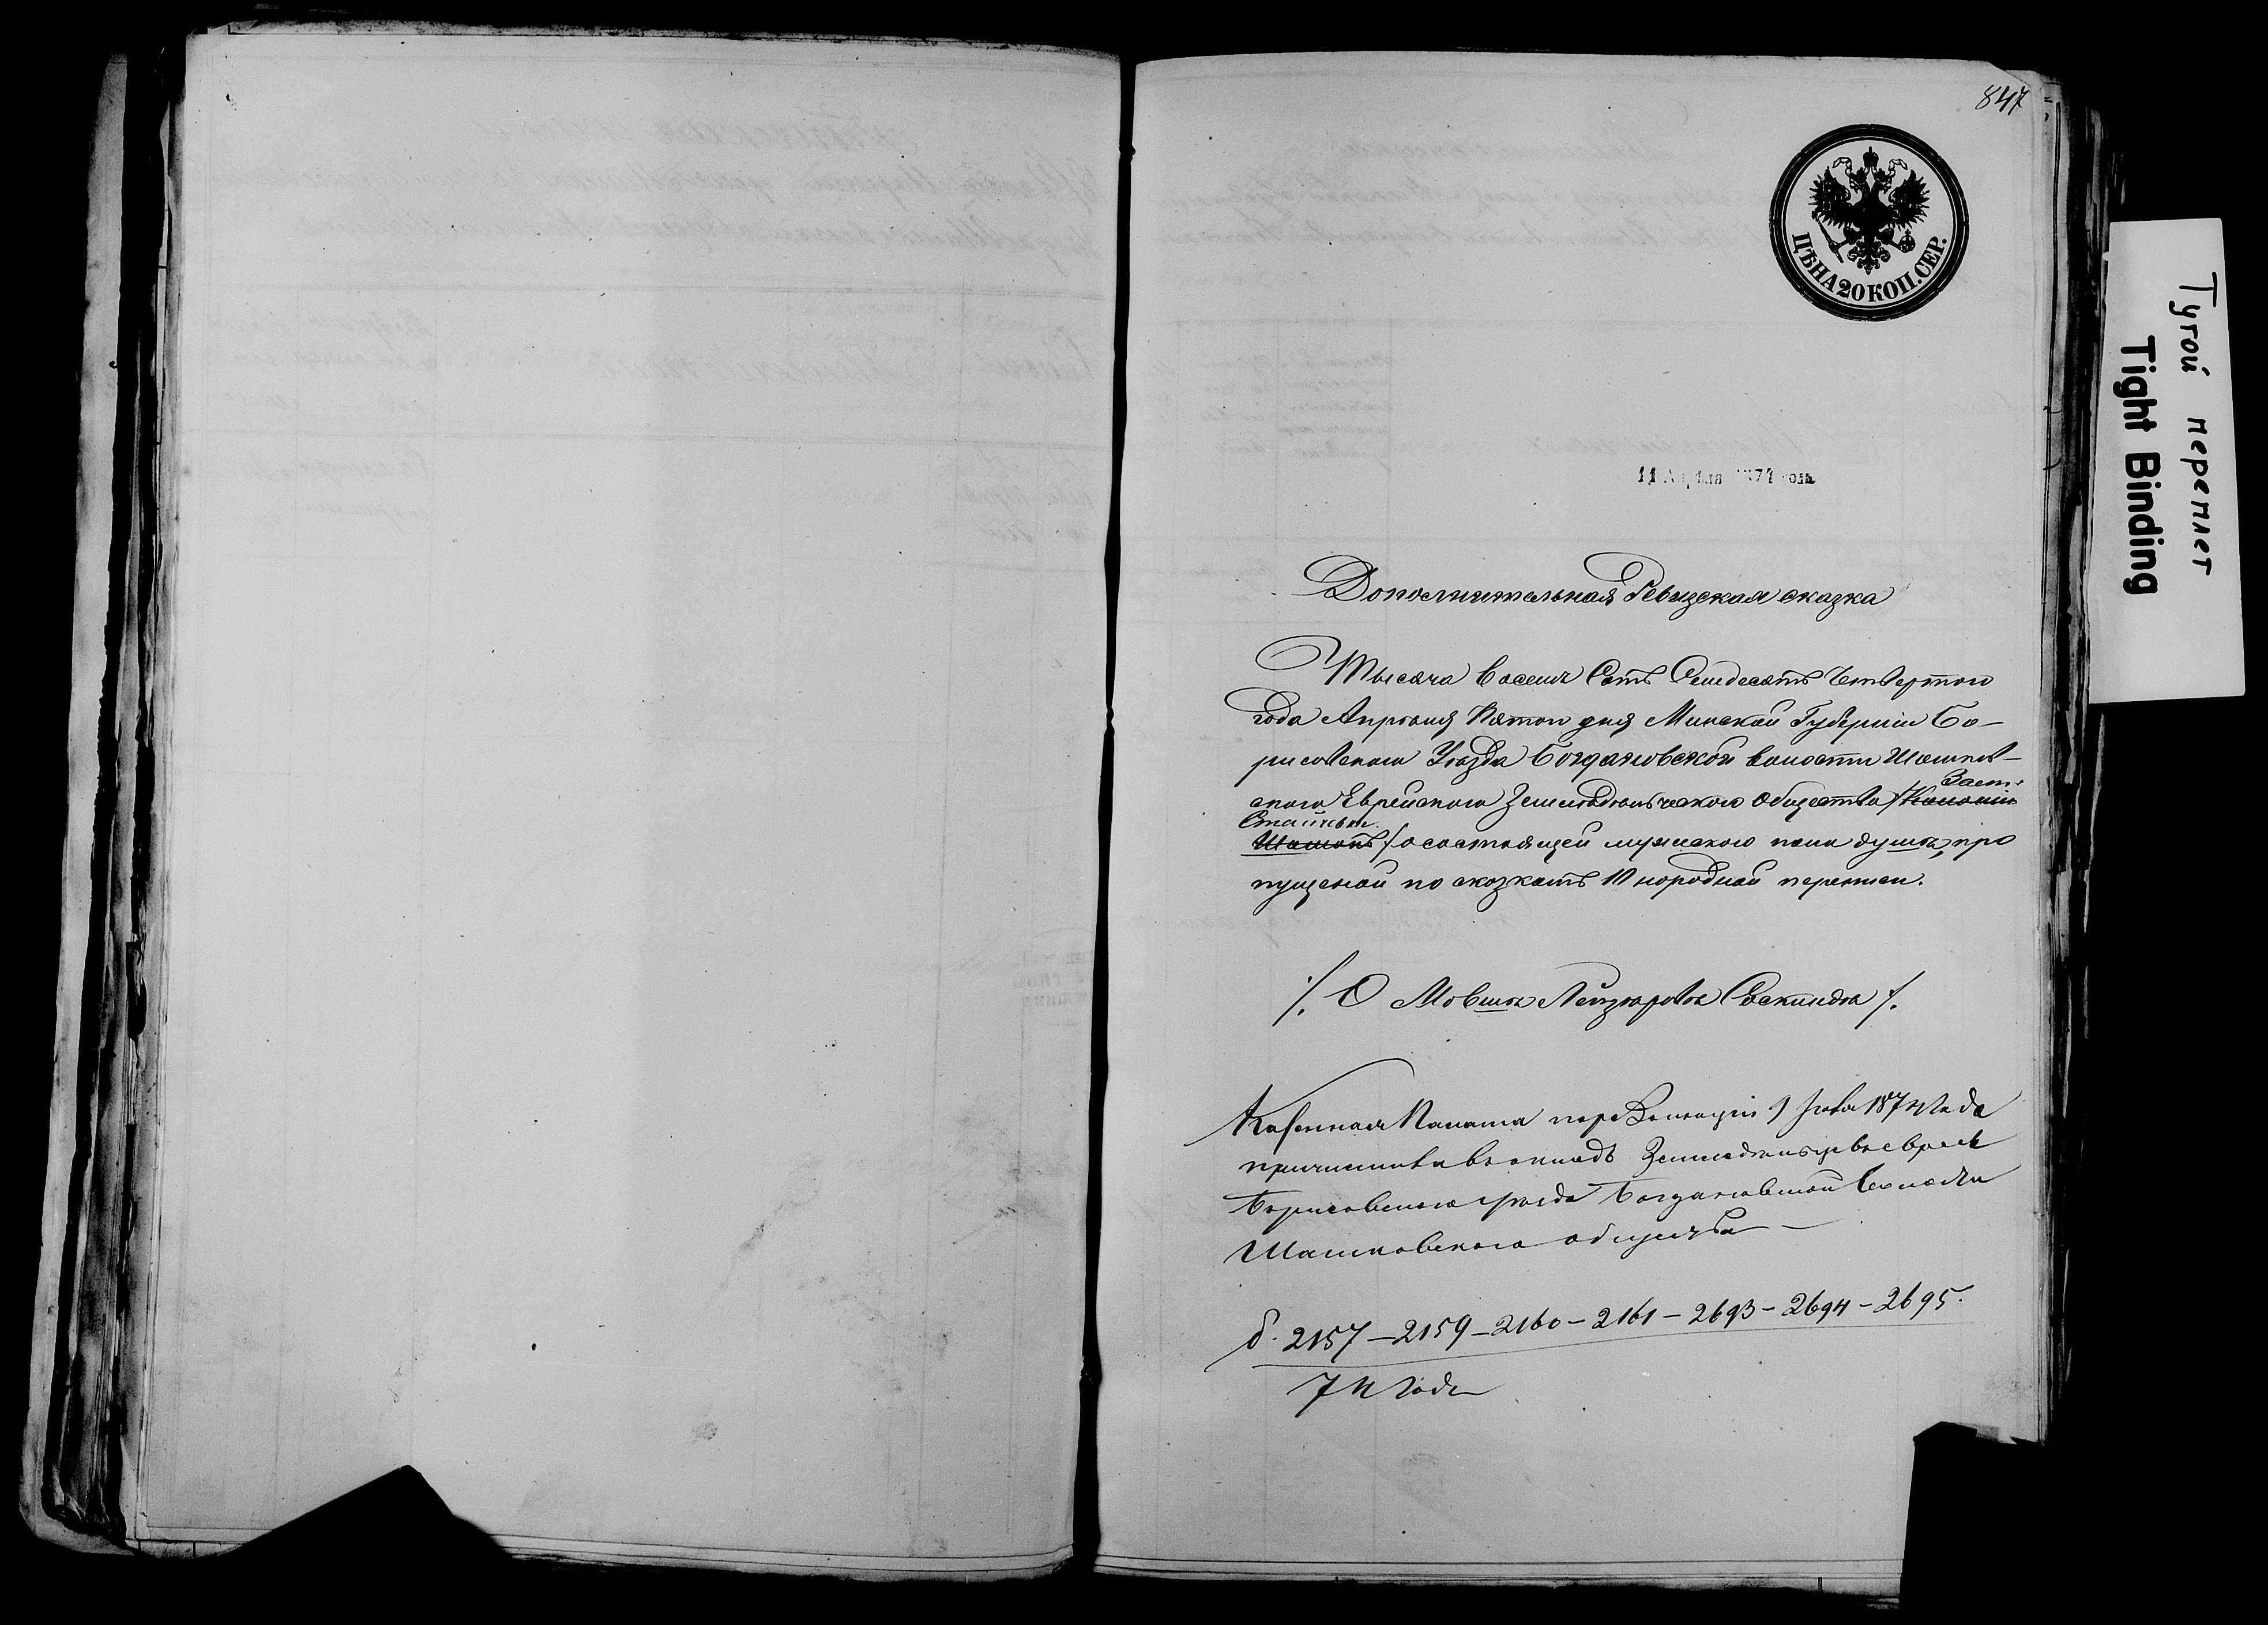 847
ЦѢНА 20 КОП. СЕР.
Тугой переплет
Tight Binding
11 Апрѣля 1874 года
Дополнительная Ревизская сказка
Тысяча восемь Сотъ Семдесятъ Четвертого
года Апрѣля Пятого дня Минской Губерніи Бо-
рисовскаго Уѣзда Богдановской волости Шашков-
Заст:
скаго Еврейского Земледѣльческаго Общества /Колоніи
Стайчев
Шашков/ о состоящей мужеского пола душѣ, про
пущеной по сказкамъ 10 народной переписи.
/. О Мовшѣ Лейзеровѣ Соскиндѣ /.
Казенная Палата по резолюціи 9 1874 года
причислила въ окладъ Земледѣльцевъ евреевъ
Борисовскаго уѣзда Богдановской волости
Шашковскаго общества —
б. 2157 — 2159 — 2160 — 2161 — 2693 — 2694 — 2695.
74 года